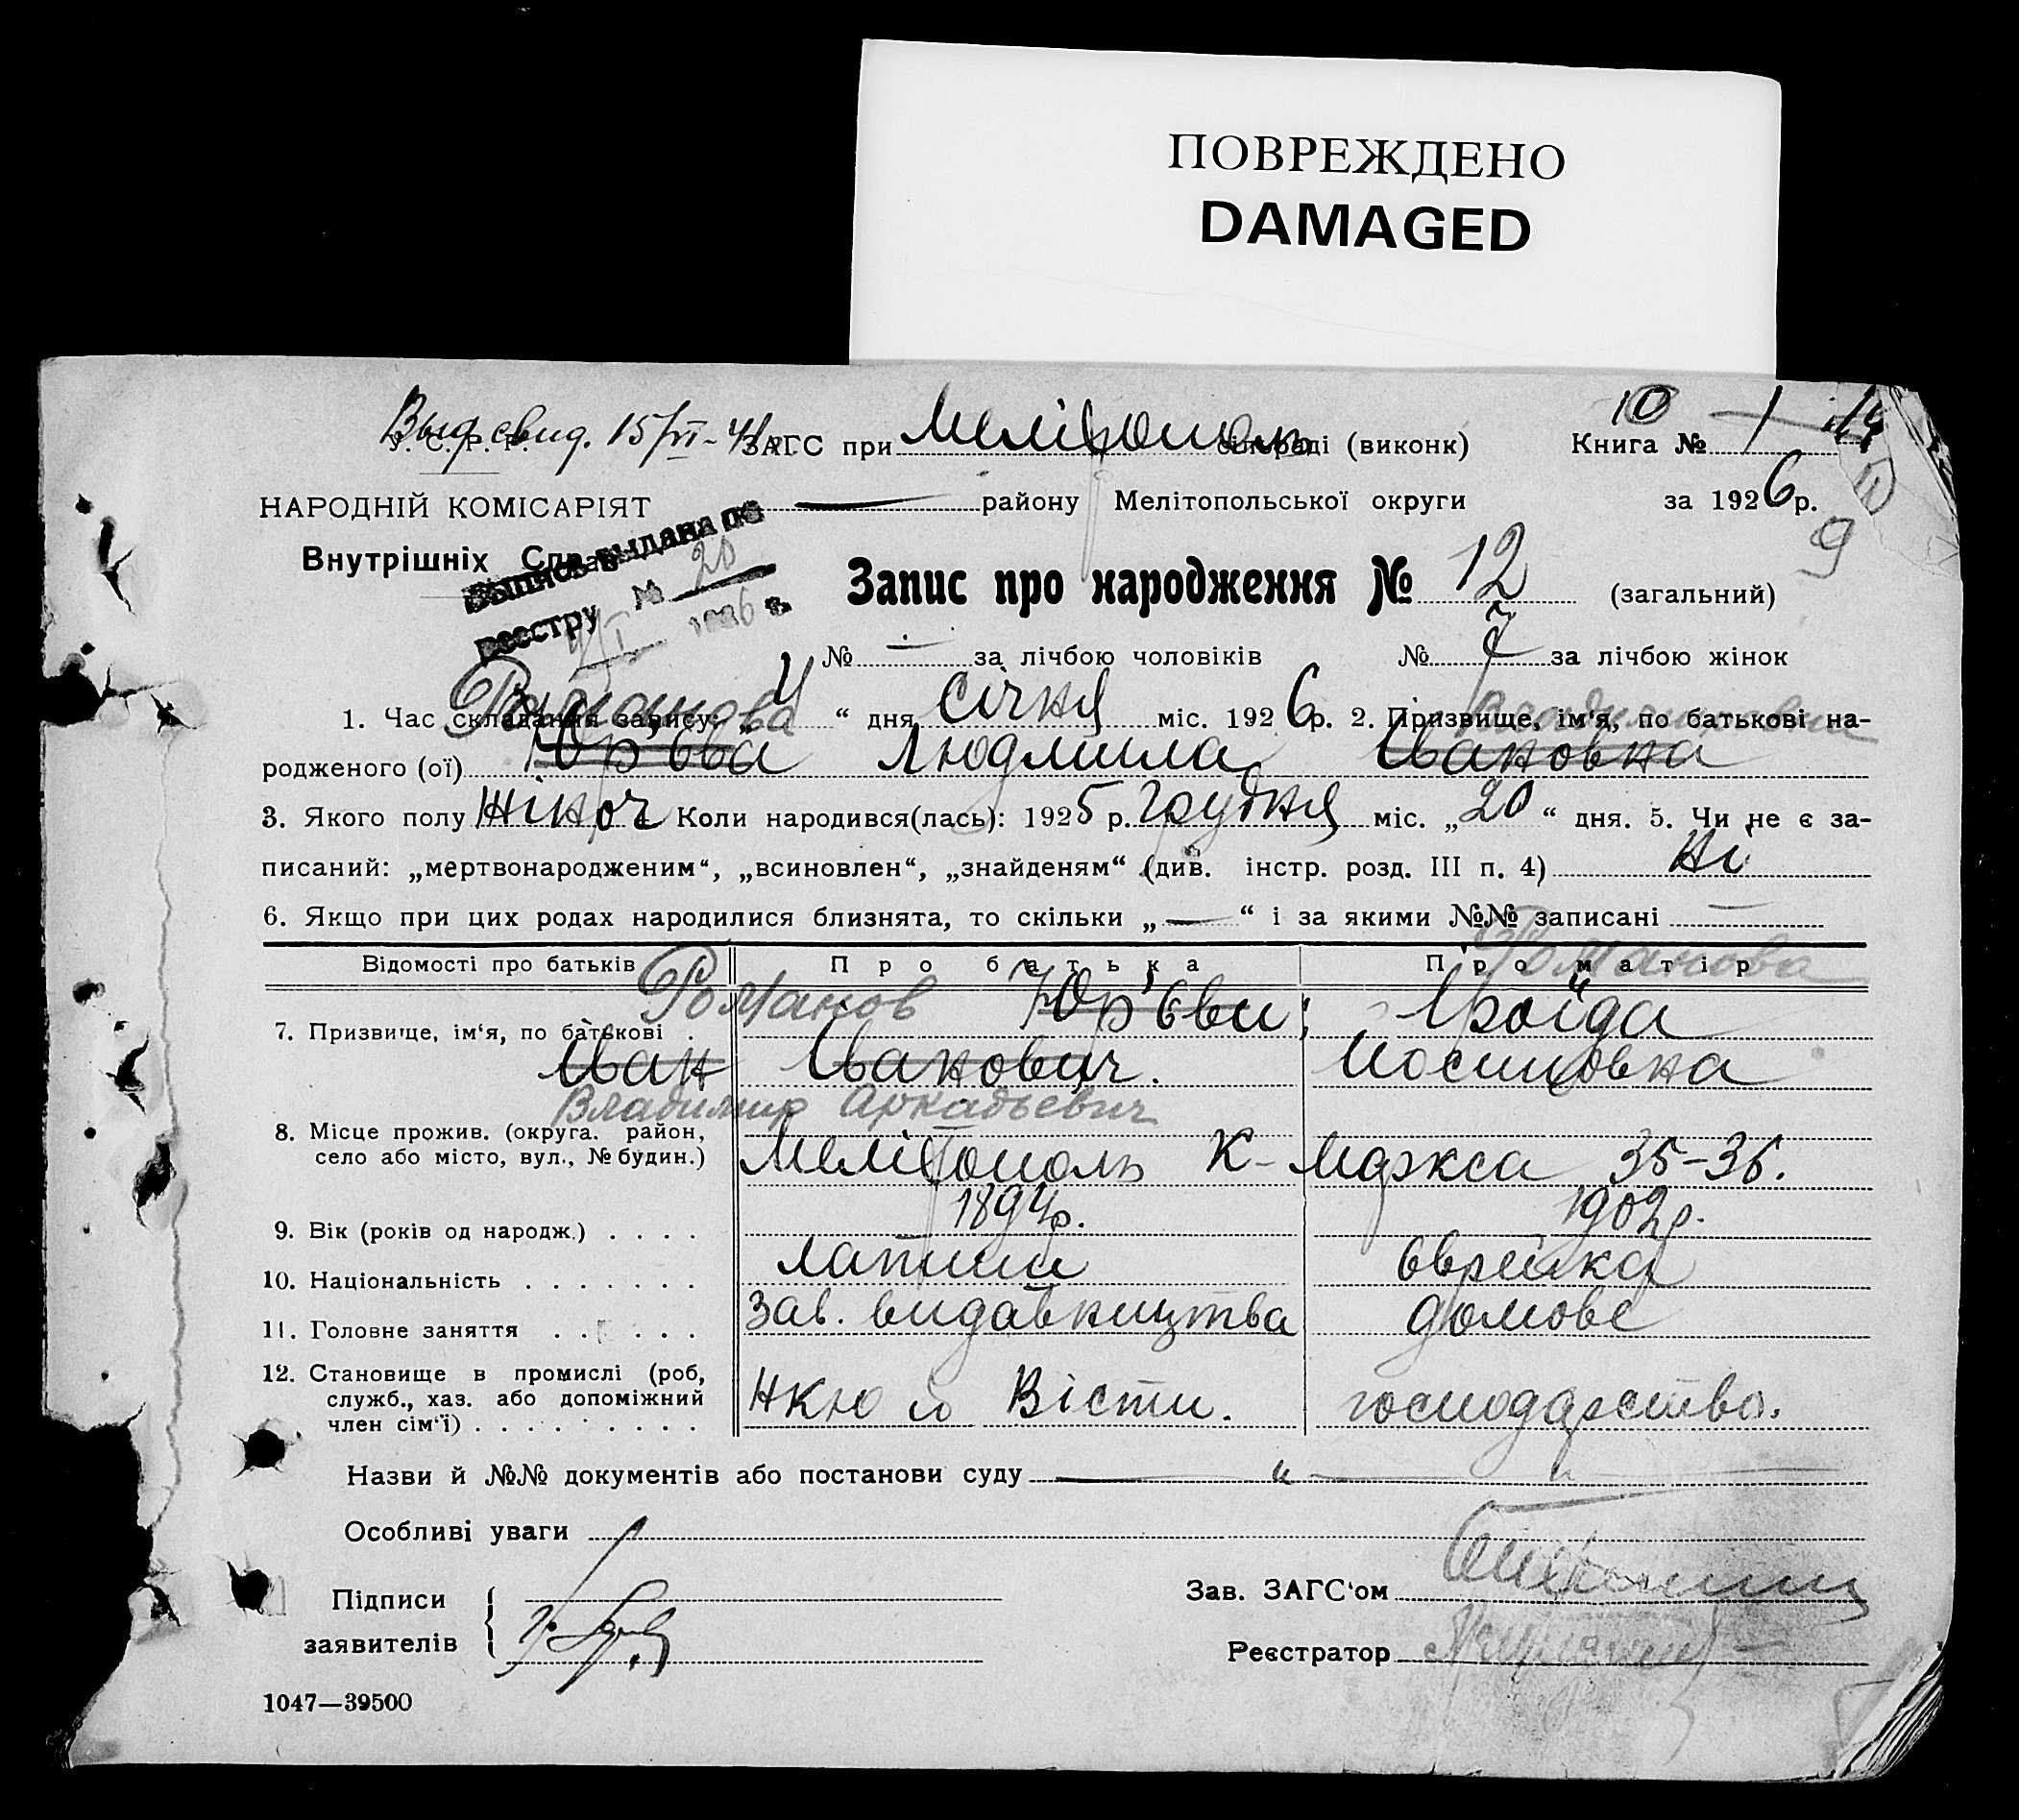 ПОВРЕЖДЕНО
DAMAGED
Выд. свид. 15/VI-41 г.
У. С. Р. Р. ЗАГС при Мелітополь сільраді (виконк) Книга № 1
10
НАРОДНІЙ КОМІСАРІЯТ — району Мелітопольської округи за 1926 р.
9
Внутрішніх Справ
Выпись выдана по
реестру № 20
4/I 1926 г.
Запис про народження № 12 (загальний)
№ — за лічбою чоловіків № 7 за лічбою жінок
Романова Владимировна
1. Час складання запису: „4“ дня січня міс. 1926 р. 2. Призвище, ім‘я, по батькові на-
родженого (ої) Юр'єва Людмила Івановна
3. Якого полу жіноч 4. Коли народився(лась): 1925 р. грудня міс. „20“ дня. 5. Чи не є за-
писаний: „мертвонародженим“, „всиновлен“, „знайденям“ (див. інстр. розд. III п. 4) ні
6. Якщо при цих родах народилися близнята, то скільки „—“ і за якими №№ записані —
Відомості про батьків Про батька Про матір
Романов Романова
7. Призвище, ім‘я, по батькові Юр'єви; Іраїда
Іван Іванович. Йосиповна
Владимир Аркадьевич
8. Місце прожив. (округа. район,
село або місто, вул., № будин.) Мелітополь К-Маркса 35-36.
9. Вік (років од народж.) 1894 р. 1902 р.
10. Національність латиш єврейка
11. Головне заняття зав. видавництва домове
12. Становище в промислі (роб,
служб., хаз. або допоміжний
член сім‘ї) НКЮ й Вісти. господарство.
Назви й №№ документів або постанови суду — „ — „ —
Особливі уваги
Підписи
заявителів
Зав. ЗАГС‘ом
Реєстратор
1047—39500